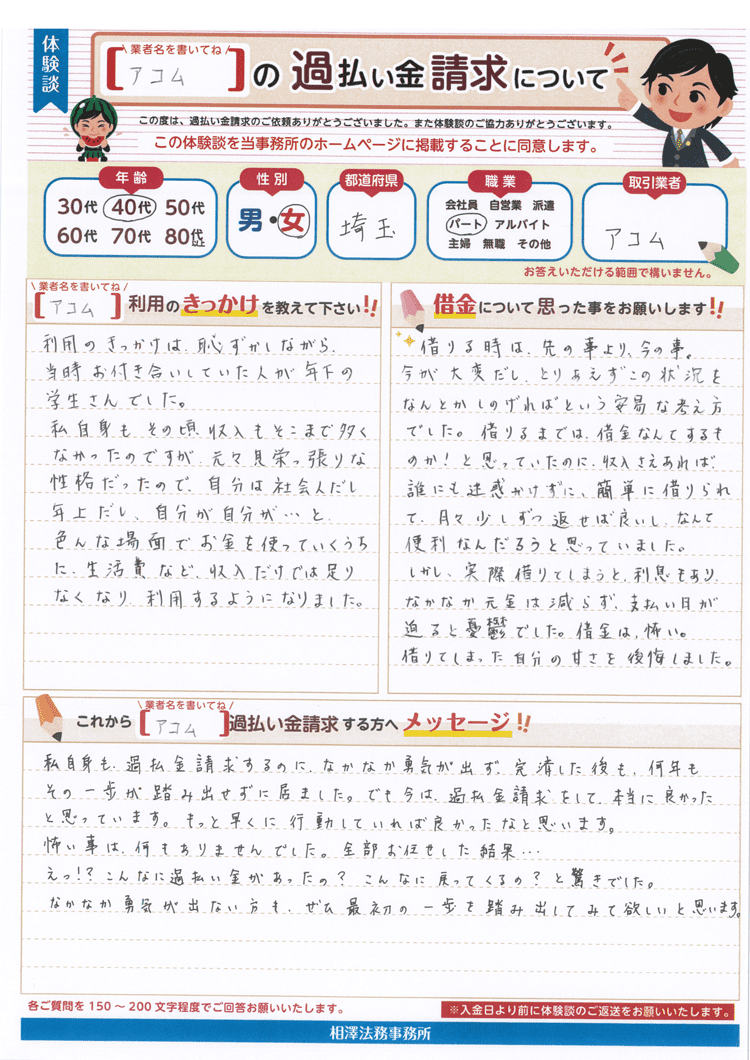 体験談
業者名を書いてね
[アコム]の過払い金請求について
この度は、過払い金請求のご依頼ありがとうございました。また体験談のご協力ありがとうございます。
この体験談を当事務所のホームページに掲載することに同意します。
年齢
30代 40代 50代
60代 70代 80代以上
性別
男・女
都道府県
埼玉
職業
会社員 自営業 派遣
パート アルバイト
主婦 無職 その他
取引業者
アコム
お答えいただける範囲で構いません。
業者名を書いてね
[アコム]利用のきっかけを教えて下さい!!
利用のきっかけは、恥ずかしながら、
当時お付き合いしていた人が年下の
学生さんでした。
私自身も、その頃収入もそこまで多く
なかったのですが、元々見栄っ張りな
性格だったので、自分は社会人だし
年上だし、自分が自分が…と、
色んな場面でお金を使っていくうち
に、生活費など、収入だけでは足り
なくなり、利用するようになりました。
借金について思った事をお願いします!!
借りる時は、先の事より、今の事。
今が大変だし、とりあえずこの状況を
なんとかしのげればという安易な考え方
でした。借りるまでは、借金なんてするも
のか!と思っていたのに、収入さえあれば、
誰にも迷惑かけずに、簡単に借りられ
て、月々少しずつ返せば良いし、なんて
便利なんだろうと思っていました。
しかし、実際借りてしまうと、利息もあり、
なかなか元金は減らず、支払い日が
迫ると憂鬱でした。借金は、怖い。
借りてしまった自分の甘さを後悔しました。
業者名を書いてね
これから[アコム]過払い金請求する方へメッセージ!!
私自身も、過払金請求するのに、なかなか勇気が出ず、完済した後も、何年も
その一歩が踏み出せずに居ました。でも今は、過払金請求をして、本当に良かった
と思っています。もっと早くに行動していれば良かったなと思います。
怖い事は、何もありませんでした。全部お任せした結果…
えっ!?こんなに過払い金があったの?こんなに戻ってくるの?と驚きでした。
なかなか勇気が出ない方も、ぜひ最初の一歩を踏み出してみて欲しいと思います。
各ご質問を150~200文字程度でご回答お願いいたします。
※入金日より前に体験談のご返送をお願いいたします。
相澤法務事務所